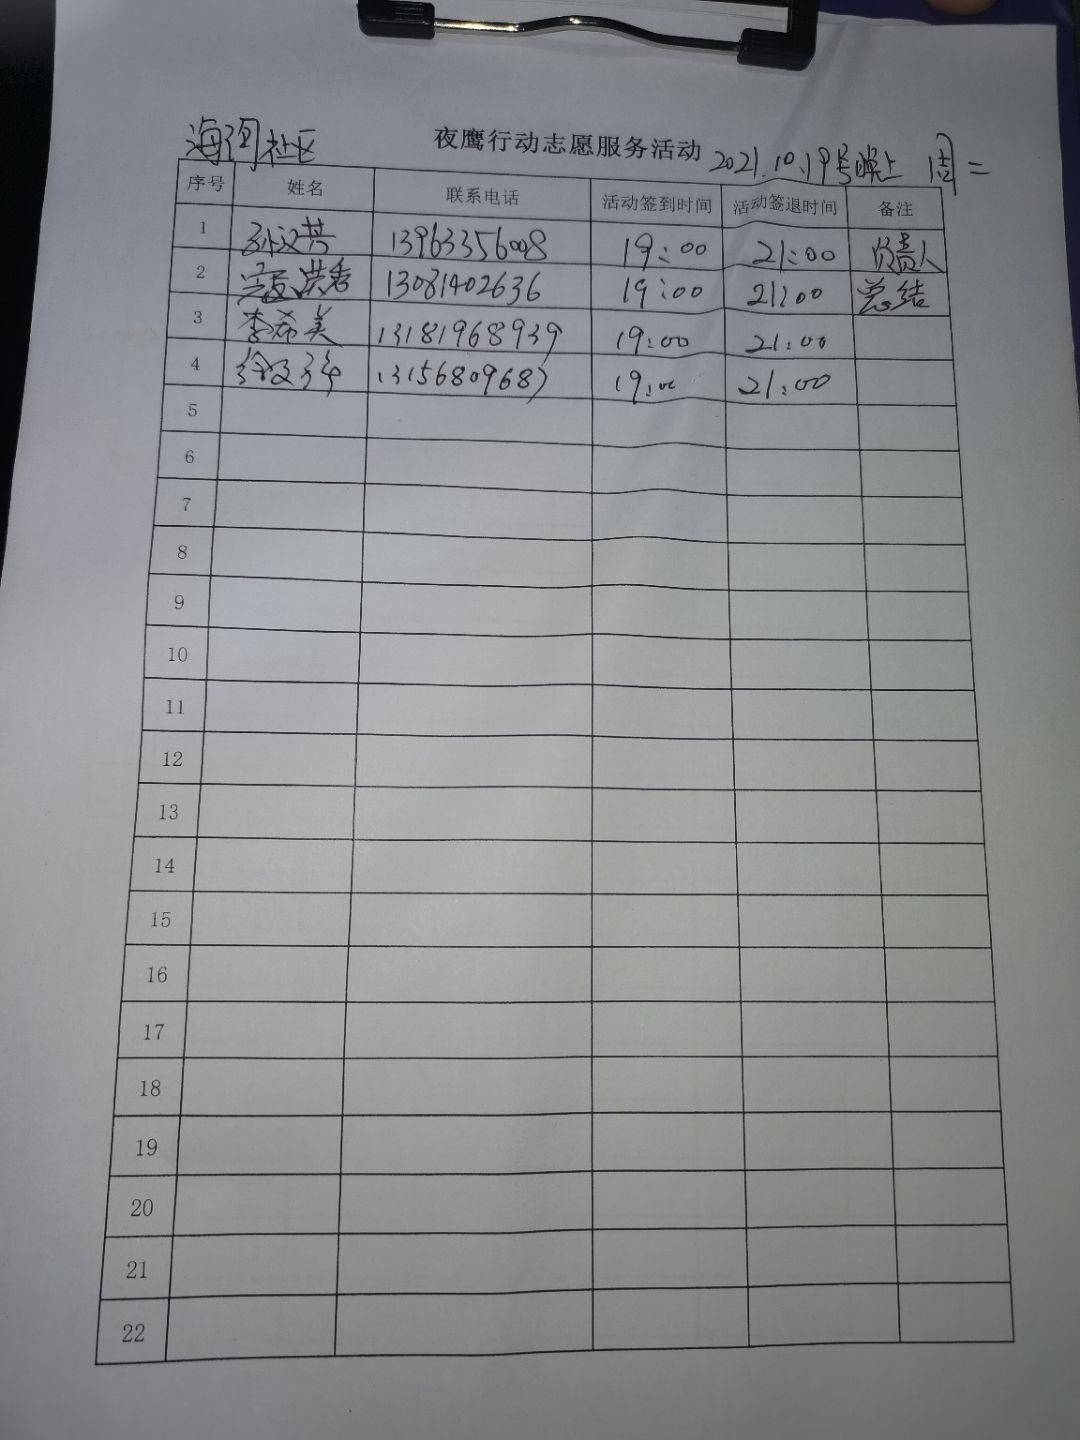 海河社区 夜鹰行动志愿服务活动 2021.10.19号晚上 周二
序号 姓名 联系电话 活动签到时间 活动签退时间 备注
1 13963356008 19:00 21:00 负责人
2 13081402636 19:00 21:00 总结
3 李希美 13181968939 19:00 21:00
4 13156809687 19:00 21:00
5
6
7
8
9
10
11
12
13
14
15
16
17
18
19
20
21
22